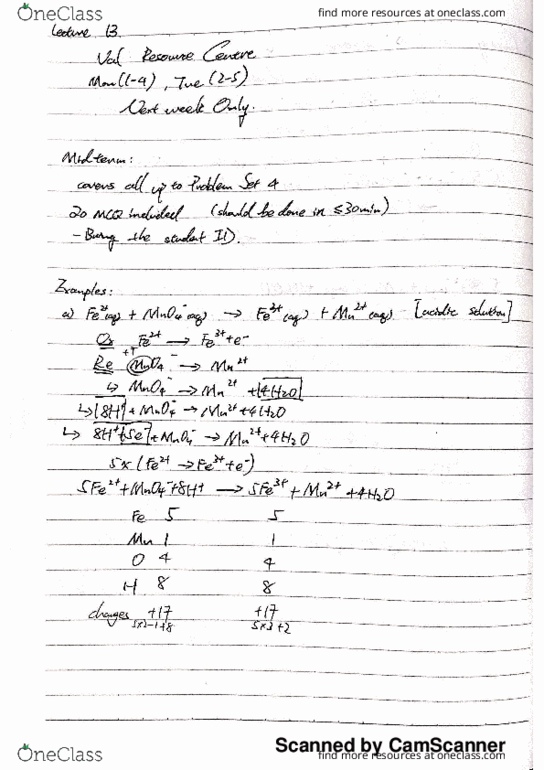 OneClass
find more resources at oneclass.com
Lecture 13
Val Resource Centre
Mon (1-4), Tue (2-5)
Next week Only.
Midterm:
covers all up to Problem Set 4
20 MCQ included (should be done in ≤30min)
- Bring the student ID.
Examples:
a) Fe²⁺(aq) + MnO₄⁻(aq) → Fe³⁺(aq) + Mn²⁺(aq) [acidic solution]
Ox Fe²⁺ → Fe³⁺ + e⁻
+7
Re MnO₄⁻ → Mn²⁺
↳ MnO₄⁻ → Mn²⁺ + 4H₂O
↳ 8H⁺ + MnO₄⁻ → Mn²⁺ + 4H₂O
↳ 8H⁺ + 5e⁻ + MnO₄⁻ → Mn²⁺ + 4H₂O
5x (Fe²⁺ → Fe³⁺ + e⁻)
5Fe²⁺ + MnO₄⁻ + 8H⁺ → 5Fe³⁺ + Mn²⁺ + 4H₂O
Fe 5 5
Mn 1 1
O 4 4
H 8 8
charges +17 +17
5x2-1+8 5x3+2
Scanned by CamScanner
OneClass
find more resources at oneclass.com